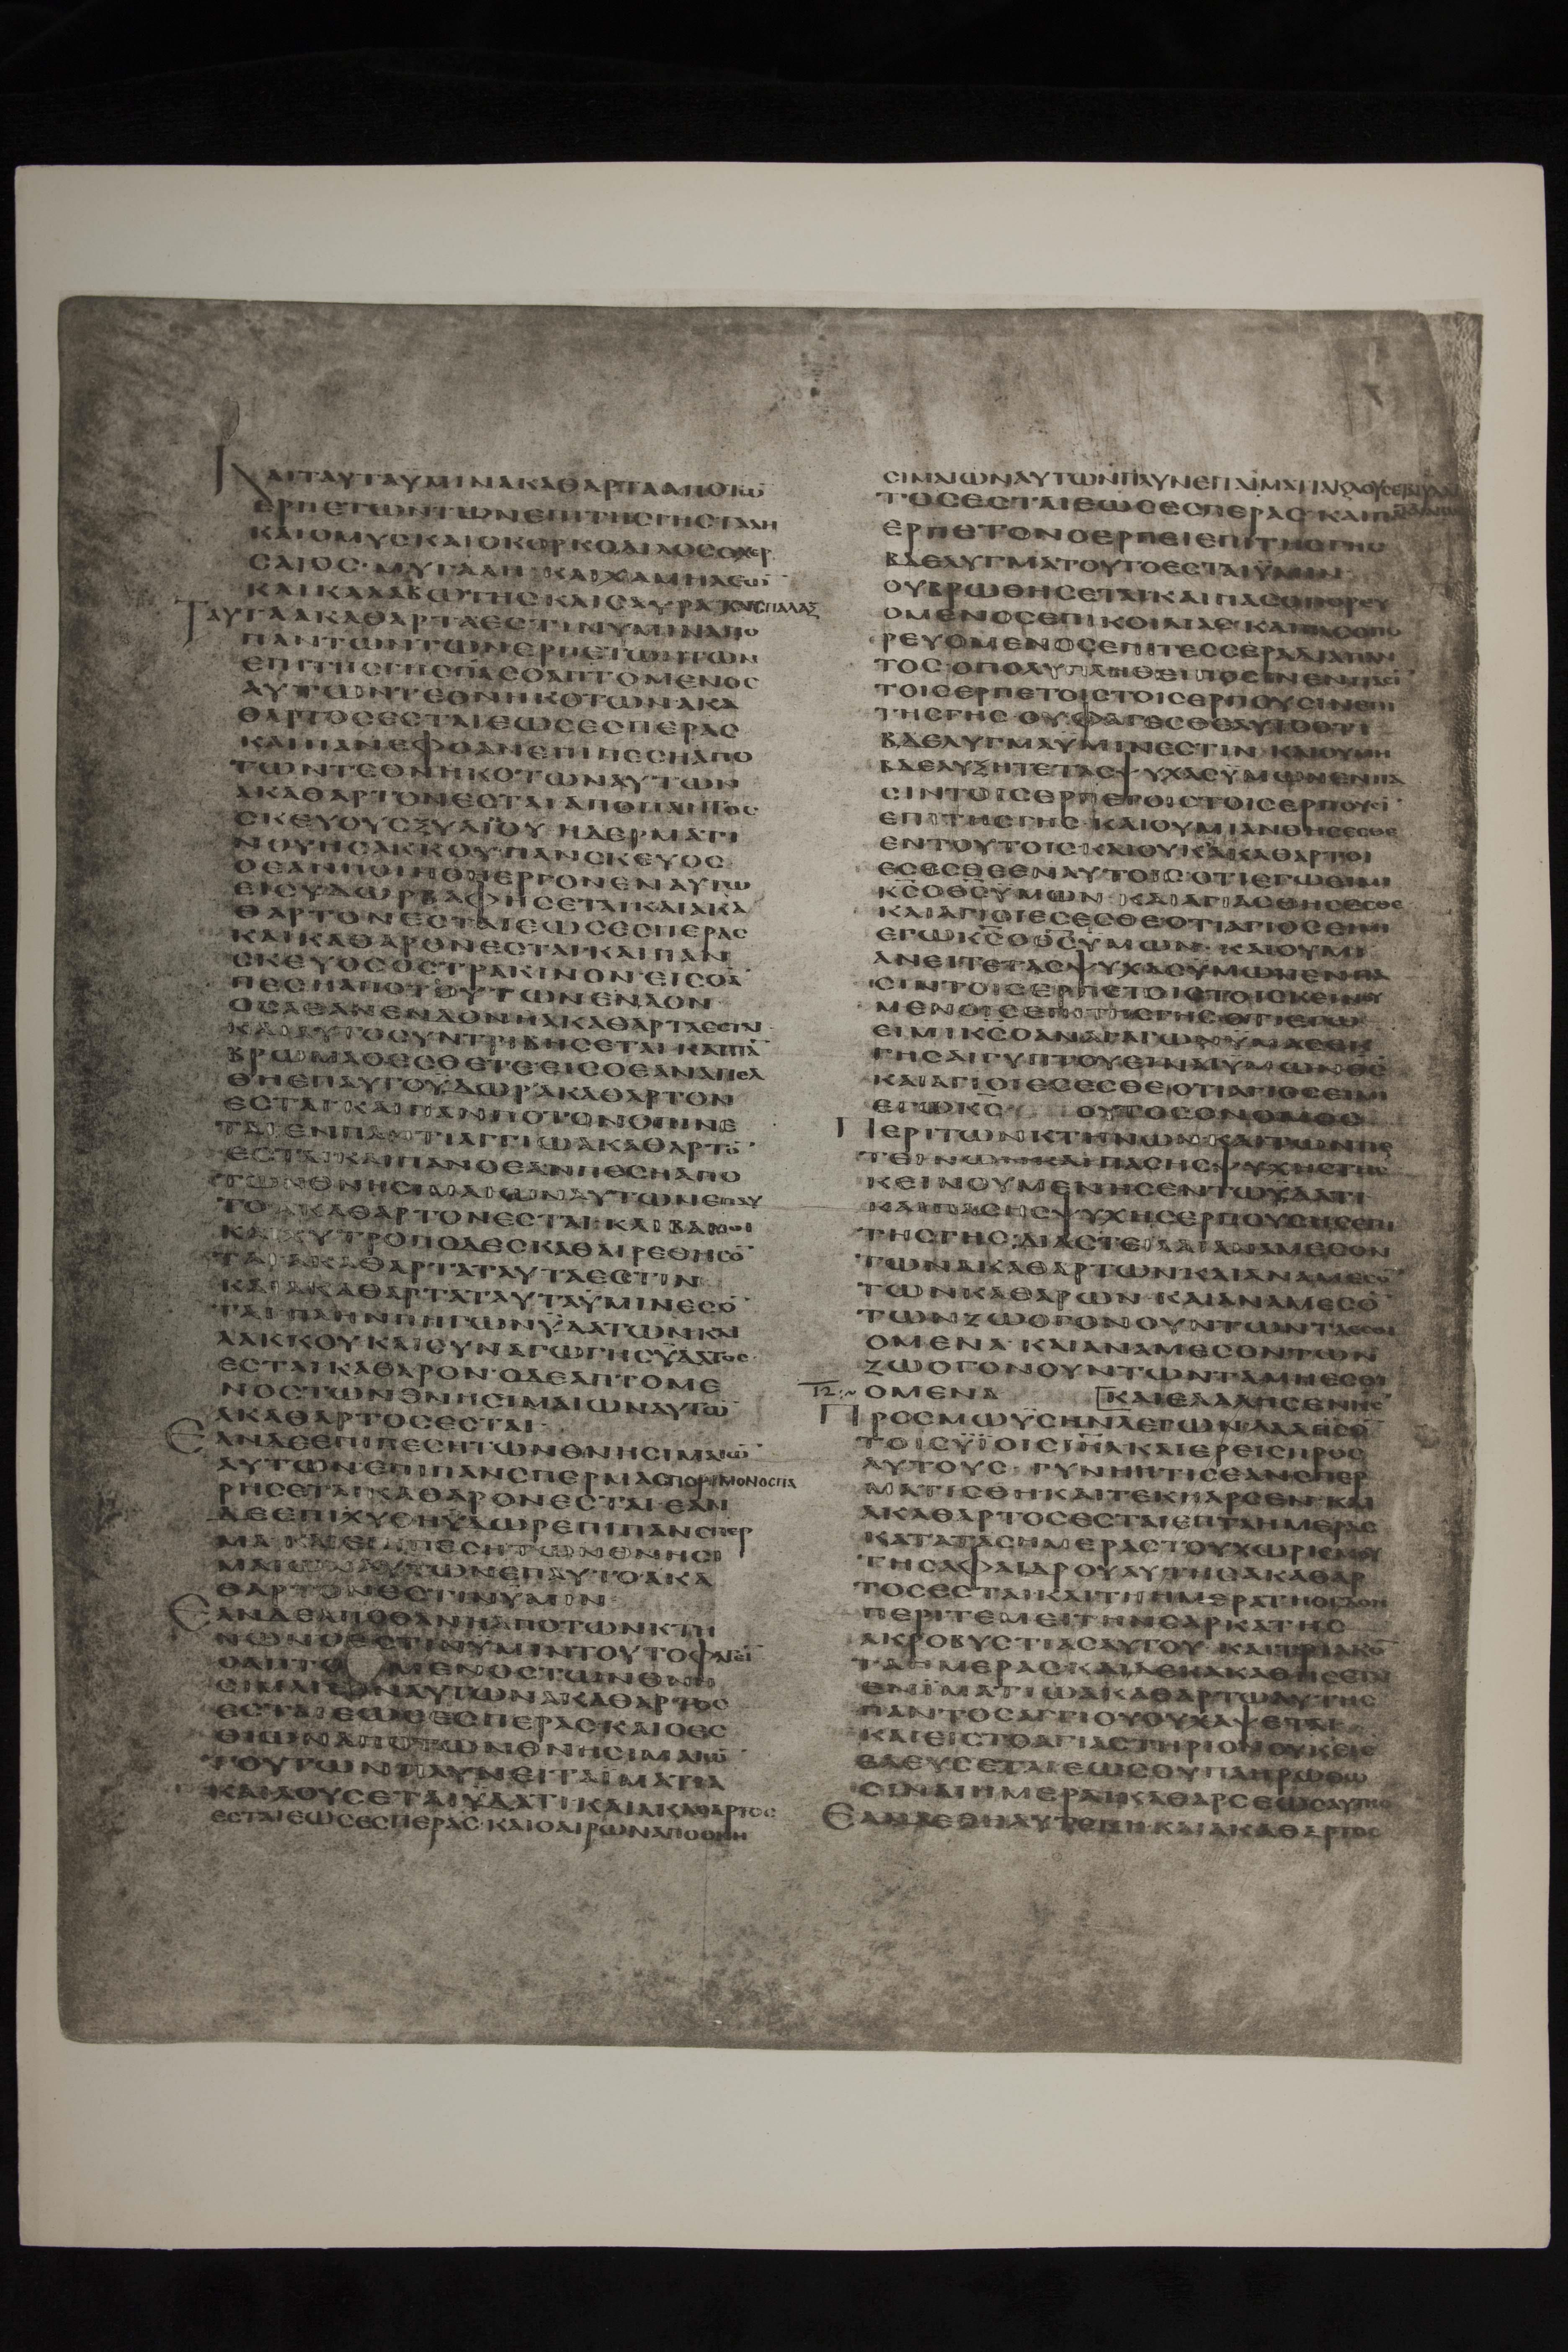 ΚΑΙΤΑΥΤΑΥΜΙΝΑΚΑΘΑΡΤΑΑΠΟΤΩ̅
ΕΡΠΕΤΩΝΤΩΝΕΠΙΤΗΣΓΗΣΓΑΛΗ
ΚΑΙΟΜΥΣΚΑΙΟΚΟΡΚΟΔΙΛΟΣΟΧΕΡ
ΣΑΙΟΣ·ΜΥΓΑΛΗ·ΚΑΙΧΑΜΗΛΕΩ̅
ΚΑΙΚΑΛΑΒΩΤΗΣΚΑΙΣΑΥΡΑΚΑΙΣΠΑΛΑΞ
ΤΑΥΤΑΑΚΑΘΑΡΤΑΕΣΤΙΝΥΜΙΝΑΠΟ
ΠΑΝΤΩΝΤΩΝΕΡΠΕΤΩΝΤΩΝ
ΕΠΙΤΗΣΓΗΣΠΑΣΟΑΠΤΟΜΕΝΟΣ
ΑΥΤΩΝΤΕΘΝΗΚΟΤΩΝΑΚΑ
ΘΑΡΤΟΣΕΣΤΑΙΕΩΣΕΣΠΕΡΑΣ
ΚΑΙΠΑΝΕΦΟΑΝΕΠΙΠΕΣΗΑΠΟ
ΤΩΝΤΕΘΝΗΚΟΤΩΝΑΥΤΩΝ
ΑΚΑΘΑΡΤΟΝΕΣΤΑΙΑΠΟΠΑΝΤΟΣ
ΣΚΕΥΟΥΣΞΥΛΙΝΟΥΗΔΕΡΜΑΤΙ
ΝΟΥΗΣΑΚΚΟΥΠΑΝΣΚΕΥΟΣ
ΟΕΑΝΠΟΙΗΘΗΕΡΓΟΝΕΝΑΥΤΩ
ΕΙΣΥΔΩΡΒΑΦΗΣΕΤΑΙΚΑΙΑΚΑ
ΘΑΡΤΟΝΕΣΤΑΙΕΩΣΕΣΠΕΡΑΣ
ΚΑΙΚΑΘΑΡΟΝΕΣΤΑΙ·ΚΑΙΠΑΝ
ΣΚΕΥΟΣΟΣΤΡΑΚΙΝΟΝΕΙΣΟΑ̅
ΠΕΣΗΑΠΟΤΟΥΤΩΝΕΝΔΟΝ
ΟΣΑΕΑΝΕΝΔΟΝΗΑΚΑΘΑΡΤΑΕΣΤΙΝ
ΚΑΙΑΥΤΟΣΥΝΤΡΙΒΗΣΕΤΑΙ·ΚΑΙΠΑ̅
ΒΡΩΜΑΟΕΣΘΕΤΕΕΙΣΟΕΑΝΑΠΕΛ
ΘΗΕΠΑΥΤΟΫΔΩΡΑΚΑΘΑΡΤΟΝ
ΕΣΤΑΙ·ΚΑΙΠΑΝΠΟΤΟΝΟΠΙΝΕ
ΤΑΙΕΝΠΑΝΤΙΑΓΓΙΩΑΚΑΘΑΡΤΟ̅
ΕΣΤΑΙΚΑΙΠΑΝΟΕΑΝΠΕΣΗΑΠΟ
ΤΩΝΘΝΗΣΙΜΑΙΩΝΑΥΤΩΝΕΠΑΥ
ΤΟΑΚΑΘΑΡΤΟΝΕΣΤΑΙ·ΚΛΙΒΑΝΟΙ
ΚΑΙΧΥΤΡΟΠΟΔΕΣΚΑΘΑΙΡΕΘΗΣΟ̅
ΤΑΙΑΚΑΘΑΡΤΑΤΑΥΤΑΕΣΤΙΝ
ΚΑΙΑΚΑΘΑΡΤΑΤΑΥΤΑΫΜΙΝΕΣΟ̅
ΤΑΙΠΛΗΝΠΗΓΩΝΫΔΑΤΩΝΚΑΙ
ΛΑΚΚΟΥΚΑΙΣΥΝΑΓΩΓΗΣΫΔΑΤΟΣ
ΕΣΤΑΙΚΑΘΑΡΟΝ·ΟΔΕΑΠΤΟΜΕ
ΝΟΣΤΩΝΘΝΗΣΙΜΑΙΩΝΑΥΤΩ̅
ΑΚΑΘΑΡΤΟΣΕΣΤΑΙ·
ΕΑΝΔΕΕΠΙΠΕΣΗΤΩΝΘΝΗΣΙΜΑΙΩ̅
ΑΥΤΩΝΕΠΙΠΑΝΣΠΕΡΜΑΣΠΟΡΙΜΟΝΟΣΠΑ
ΡΗΣΕΤΑΙΚΑΘΑΡΟΝΕΣΤΑΙ·ΕΑΝ
ΔΕΕΠΙΧΥΘΗΫΔΩΡΕΠΙΠΑΝΣΠΕΡ
ΜΑΚΑΙΕΠΙΠΕΣΗΤΩΝΘΝΗΣΙ
ΜΑΙΩΝΑΥΤΩΝΕΠΑΥΤΟΑΚΑ
ΘΑΡΤΟΝΕΣΤΙΝΫΜΙΝ
ΕΑΝΔΕΑΠΟΘΑΝΗΑΠΟΤΩΝΚΤΗ
ΝΩΝΟΕΣΤΙΝΫΜΙΝΤΟΥΤΟΦΑΓΕΙ̅
ΟΑΠΤΟΜΕΝΟΣΤΩΝΘΝΗ
ΣΙΜΑΙΩΝΑΥΤΩΝΑΚΑΘΑΡΤΟΣ
ΕΣΤΑΙΕΩΣΕΣΠΕΡΑΣΚΑΙΟΕΣ
ΘΙΩΝΑΠΟΤΩΝΘΝΗΣΙΜΑΙΩ̅
ΤΟΥΤΩΝΠΛΥΝΕΙΤΑΪΜΑΤΙΑ
ΚΑΙΛΟΥΣΕΤΑΙΫΔΑΤΙΚΑΙΑΚΑΘΑΡΤΟΣ
ΕΣΤΑΙΕΩΣΕΣΠΕΡΑΣ·ΚΑΙΟΑΙΡΩΝΑΠΟΘΝΗ
ΣΙΜΑΙΩΝΑΥΤΩΝΠΛΥΝΕΙΤΑΪΜΑΤΙΑ
ΤΟΣΕΣΤΑΙΕΩΣΕΣΠΕΡΑΣ·ΚΑΙΠΑΝ
ΕΡΠΕΤΟΝΟΕΡΠΕΙΕΠΙΤΗΣΓΗΣ
ΒΔΕΛΥΓΜΑΤΟΥΤΟΕΣΤΑΙΫΜΙΝ
ΟΥΒΡΩΘΗΣΕΤΑΙΚΑΙΠΑΣΟΠΟΡΕΥ
ΟΜΕΝΟΣΕΠΙΚΟΙΛΙΑΣ·ΚΑΙΠΑΣΟΠΟ
ΡΕΥΟΜΕΝΟΣΕΠΙΤΕΣΣΕΡΑΔΙΑΠΑΝ
ΤΟΣ·ΟΠΟΛΥΠΛΗΘΕΙΠΟΣΙΝΕΝΠΑΣΙ̅
ΤΟΙΣΕΡΠΕΤΟΙΣΤΟΙΣΕΡΠΟΥΣΙΝΕΠΙ
ΤΗΣΓΗΣ·ΟΥΦΑΓΕΣΘΕΑΥΤΟΟΤΙ
ΒΔΕΛΥΓΜΑΫΜΙΝΕΣΤΙΝ·ΚΑΙΟΥΜΗ
ΒΔΕΛΥΞΗΤΕΤΑΣΨΥΧΑΣΫΜΩΝΕΝΠΑ
ΣΙΝΤΟΙΣΕΡΠΕΤΟΙΣΤΟΙΣΕΡΠΟΥΣΙ̅
ΕΠΙΤΗΣΓΗΣ·ΚΑΙΟΥΜΙΑΝΘΗΣΕΣΘΕ
ΕΝΤΟΥΤΟΙΣ·ΚΑΙΟΥΚΑΚΑΘΑΡΤΟΙ
ΕΣΕΣΘΕΕΝΑΥΤΟΙΣ·ΟΤΙΕΓΩΕΙΜΙ
Κ̅Σ̅ΟΘ̅Σ̅ΫΜΩΝ·ΚΑΙΑΓΙΑΣΘΗΣΕΣΘΕ
ΚΑΙΑΓΙΟΙΕΣΕΣΘΕΟΤΙΑΓΙΟΣΕΙΜΙ
ΕΓΩΚ̅Σ̅ΟΘ̅Σ̅ΫΜΩΝ·ΚΑΙΟΥΜΙ
ΑΝΕΙΤΕΤΑΣΨΥΧΑΣΫΜΩΝΕΝΠΑ
ΣΙΝΤΟΙΣΕΡΠΕΤΟΙΣΤΟΙΣΚΕΙΝΟΥ
ΜΕΝΟΙΣΕΠΙΤΗΣΓΗΣΟΤΙΕΓΩ
ΕΙΜΙΚ̅Σ̅ΟΑΝΑΓΑΓΩΝΫΜΑΣΕΚ
ΓΗΣΑΙΓΥΠΤΟΥΕΙΝΑΙΫΜΩΝΘ̅Σ̅
ΚΑΙΑΓΙΟΙΕΣΕΣΘΕ·ΟΤΙΑΓΙΟΣΕΙΜΙ
ΕΓΩΚ̅Σ̅ ΟΥΤΟΣΟΝΟΜΟΣ
ΠΕΡΙΤΩΝΚΤΗΝΩΝΚΑΙΤΩΝΠΕ
ΤΕΙΝΩΝΚΑΙΠΑΣΗΣΨΥΧΗΣΤΗΣ
ΚΕΙΝΟΥΜΕΝΗΣΕΝΤΩΫΔΑΤΙ
ΚΑΙΠΑΣΗΣΨΥΧΗΣΕΡΠΟΥΣΗΣΕΠΙ
ΤΗΣΓΗΣ·ΔΙΑΣΤΕΙΛΑΙΑΝΑΜΕΣΟΝ
ΤΩΝΑΚΑΘΑΡΤΩΝΚΑΙΑΝΑΜΕΣΟ̅
ΤΩΝΚΑΘΑΡΩΝ·ΚΑΙΑΝΑΜΕΣΟ̅
ΤΩΝΖΩΟΓΟΝΟΥΝΤΩΝΤΑΕΣΘΙ
ΟΜΕΝΑ·ΚΑΙΑΝΑΜΕΣΟΝΤΩΝ
ΖΩΟΓΟΝΟΥΝΤΩΝΤΑΜΗΕΣΘΙ
12 ΟΜΕΝΑ ΚΑΙΕΛΑΛΗΣΕΝΚ̅Σ̅
ΠΡΟΣΜΩΫΣΗΝΛΕΓΩΝΛΑΛΗΣΟ̅
ΤΟΙΣΫΪΟΙΣΙ̅Η̅Λ̅ΚΑΙΕΡΕΙΣΠΡΟΣ
ΑΥΤΟΥΣ·ΓΥΝΗΗΤΙΣΕΑΝΣΠΕΡ
ΜΑΤΙΣΘΗΚΑΙΤΕΚΗΑΡΣΕΝ·ΚΑΙ
ΑΚΑΘΑΡΤΟΣΕΣΤΑΙΕΠΤΑΗΜΕΡΑΣ
ΚΑΤΑΤΑΣΗΜΕΡΑΣΤΟΥΧΩΡΙΣΜΟΥ
ΤΗΣΑΦΑΙΔΡΟΥΑΥΤΗΣΑΚΑΘΑΡ
ΤΟΣΕΣΤΑΙ·ΚΑΙΤΗΗΜΕΡΑΤΗΟΓΔΟΗ
ΠΕΡΙΤΕΜΕΙΤΗΝΣΑΡΚΑΤΗΣ
ΑΚΡΟΒΥΣΤΙΑΣΑΥΤΟΥ·ΚΑΙΤΡΙΑΚΟ̅
ΤΑΗΜΕΡΑΣ·ΚΑΙΔΕΚΑΚΑΘΗΣΕΤΑΙ
ΕΝΪΜΑΤΙΩΑΚΑΘΑΡΤΩΑΥΤΗΣ
ΠΑΝΤΟΣΑΓΓΙΟΥΟΥΧΑΨΕΤΑΙ
ΚΑΙΕΙΣΤΟΑΓΙΑΣΤΗΡΙΟΝΟΥΚΕΙΣ
ΕΛΕΥΣΕΤΑΙΕΩΣΟΥΠΛΗΡΩΘΩ
ΣΙΝΑΙΗΜΕΡΑΙΚΑΘΑΡΣΕΩΣΑΥΤΗΣ
ΕΑΝΔΕΘΗΛΥΤΕΚΗ·ΚΑΙΑΚΑΘΑΡΤΟΣ